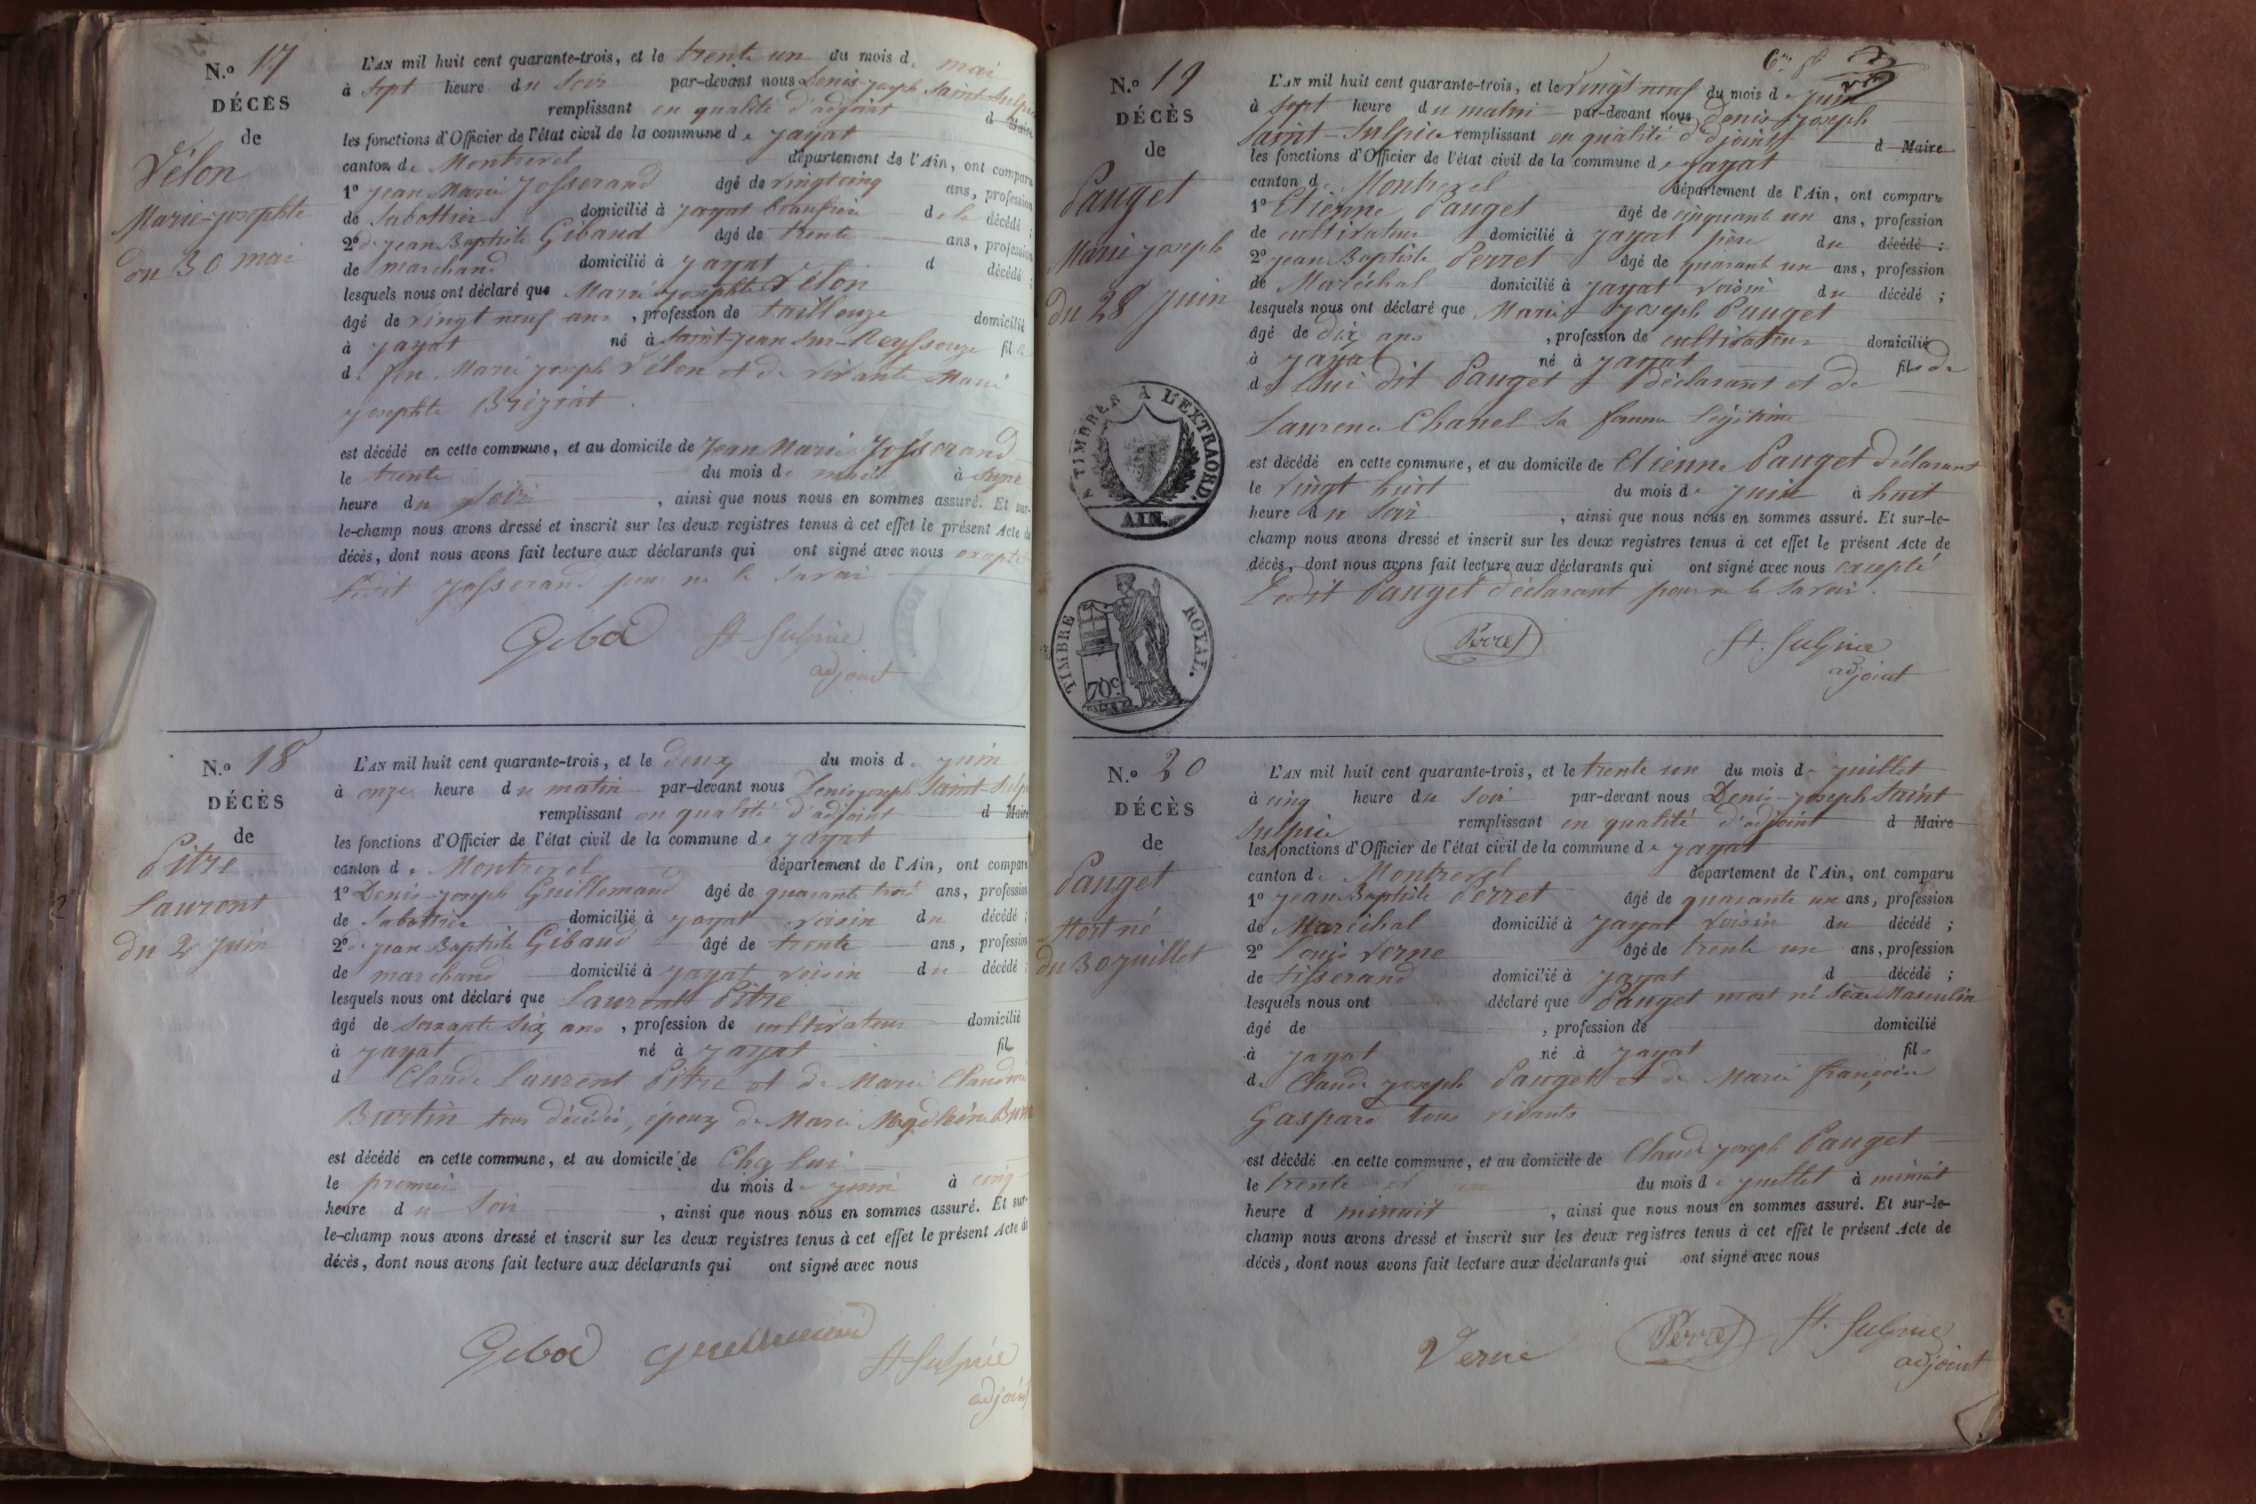 N.º 17
DÉCÈS
de
Vélon
Marie-josephte
du 30 mai
L'AN mil huit cent quarante-trois, et le trente un du mois de mai
à sept heure du soir par-devant nous Denis-joseph Saint-Sulpice
remplissant en qualité d'adjoint d Maire
les fonctions d'Officier de l'état civil de la commune de jayat
canton de Montrevel département de l'Ain, ont comparu
1º jean Marie Josserand âgé de vingt cinq ans, profession
de Sabottier domicilié à jayat beaufrère de la décédé ;
2º jean Baptiste Gibaud âgé de trente ans, profession
de marchand domicilié à jayat d décédé ;
lesquels nous ont déclaré que Marie josephte Vélon
âgé de vingt neuf ans , profession de tailleuze domicilié
à jayat né à Saint-jean-sur-Reyssouze fil
de feu Marie joseph Vélon et de vivante Marie
josephte Bréziat
est décédé en cette commune, et au domicile de Jean Marie Josserand
le trente du mois de mai à
heure du soir , ainsi que nous nous en sommes assuré. Et sur-
le-champ nous avons dressé et inscrit sur les deux registres tenus à cet effet le présent Acte de
décès, dont nous avons fait lecture aux déclarants qui ont signé avec nous excepté
ledit Josserand pour ne le savoir
Gibod St Sulpice
adjoint
N.º 18
DÉCÈS
de
Pitre
Laurent
du 2 juin
L'AN mil huit cent quarante-trois, et le deux du mois de juin
à onze heure du matin par-devant nous Denis joseph Saint-Sulpice
remplissant en qualité d'adjoint d Maire
les fonctions d'Officier de l'état civil de la commune de jayat
canton de Montrevel département de l'Ain, ont comparu
1º Denis-joseph Guillemaud âgé de quarante trois ans, profession
de Sabottier domicilié à jayat voisin du décédé ;
2º jean Baptiste Gibaud âgé de trente ans, profession
de marchand domicilié à jayat voisin du décédé ;
lesquels nous ont déclaré que Laurent Pitre
âgé de soixante six ans , profession de cultivateur domicilié
à jayat né à jayat fils
d Claude Laurent Pitre et de Marie Claudine
Burtin tous décédés, époux de Marie Magdeleine
est décédé en cette commune, et au domicile de Chez lui
le premier du mois de juin à cinq
heure du soir , ainsi que nous nous en sommes assuré. Et sur-
le-champ nous avons dressé et inscrit sur les deux registres tenus à cet effet le présent Acte de
décès, dont nous avons fait lecture aux déclarants qui ont signé avec nous
Gibod Guillemaud St Sulpice
adjoint
N.º 19
DÉCÈS
de
Pauget
Marie joseph
du 28 juin
L'AN mil huit cent quarante-trois, et le vingt neuf du mois de juin
à sept heure du matin par-devant nous Denis-joseph
Saint-Sulpice remplissant en qualité d'adjoint d Maire
les fonctions d'Officier de l'état civil de la commune de jayat
canton de Montrevel département de l'Ain, ont comparu
1º Etienne Pauget âgé de cinquante un ans, profession
de cultivateur domicilié à jayat père du décédé ;
2º jean Baptiste Perret âgé de quarante un ans, profession
de Maréchal domicilié à jayat voisin du décédé ;
lesquels nous ont déclaré que Marie Joseph Pauget
âgé de dix ans , profession de cultivateur domicilié
à jayat né à jayat fils de
d lui dit Pauget déclarant et de
Laurence Chanel sa femme légitime
est décédé en cette commune, et au domicile de Etienne Pauget déclarant
le vingt huit du mois de juin à huit
heure du soir , ainsi que nous nous en sommes assuré. Et sur-le-
champ nous avons dressé et inscrit sur les deux registres tenus à cet effet le présent Acte de
décès, dont nous avons fait lecture aux déclarants qui ont signé avec nous excepté
Ledit Pauget déclarant pour ne le savoir.
Perret St. Sulpice
adjoint
A TIMBRER À L'EXTRAORD.
AIN.
TIMBRE ROYAL.
70c
N.º 20
DÉCÈS
de
Pauget
Mort né
du 30 juillet
L'AN mil huit cent quarante-trois, et le trente un du mois de juillet
à cinq heure du soir par-devant nous Denis-joseph Saint
Sulpice remplissant en qualité d'adjoint d Maire
les fonctions d'Officier de l'état civil de la commune de jayat
canton de Montrevel département de l'Ain, ont comparu
1º jean Baptiste Perret âgé de quarante un ans, profession
de Maréchal domicilié à jayat voisin du décédé ;
2º Louis Verne âgé de trente un ans, profession
de tisserand domicilié à jayat d décédé ;
lesquels nous ont déclaré que Pauget mort né sexe Masculin
âgé de , profession de domicilié
à jayat né à jayat fils
de Claude joseph Pauget et de Marie françoise
Gaspard tous vivants
est décédé en cette commune, et au domicile de Claude joseph Pauget
le trente et un du mois de juillet à minuit
heure d minuit , ainsi que nous nous en sommes assuré. Et sur-le-
champ nous avons dressé et inscrit sur les deux registres tenus à cet effet le présent Acte de
décès, dont nous avons fait lecture aux déclarants qui ont signé avec nous
Verne Perret St. Sulpice
adjoint